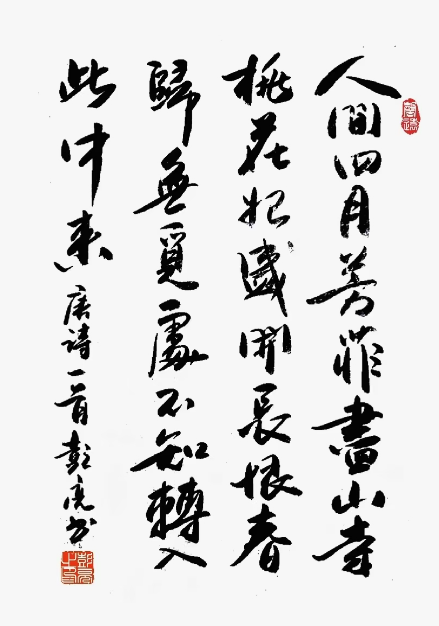 人間四月芳菲盡山寺
桃花始盛開長恨春
歸無覓處不知轉入
此中來 唐詩一首彭亮书